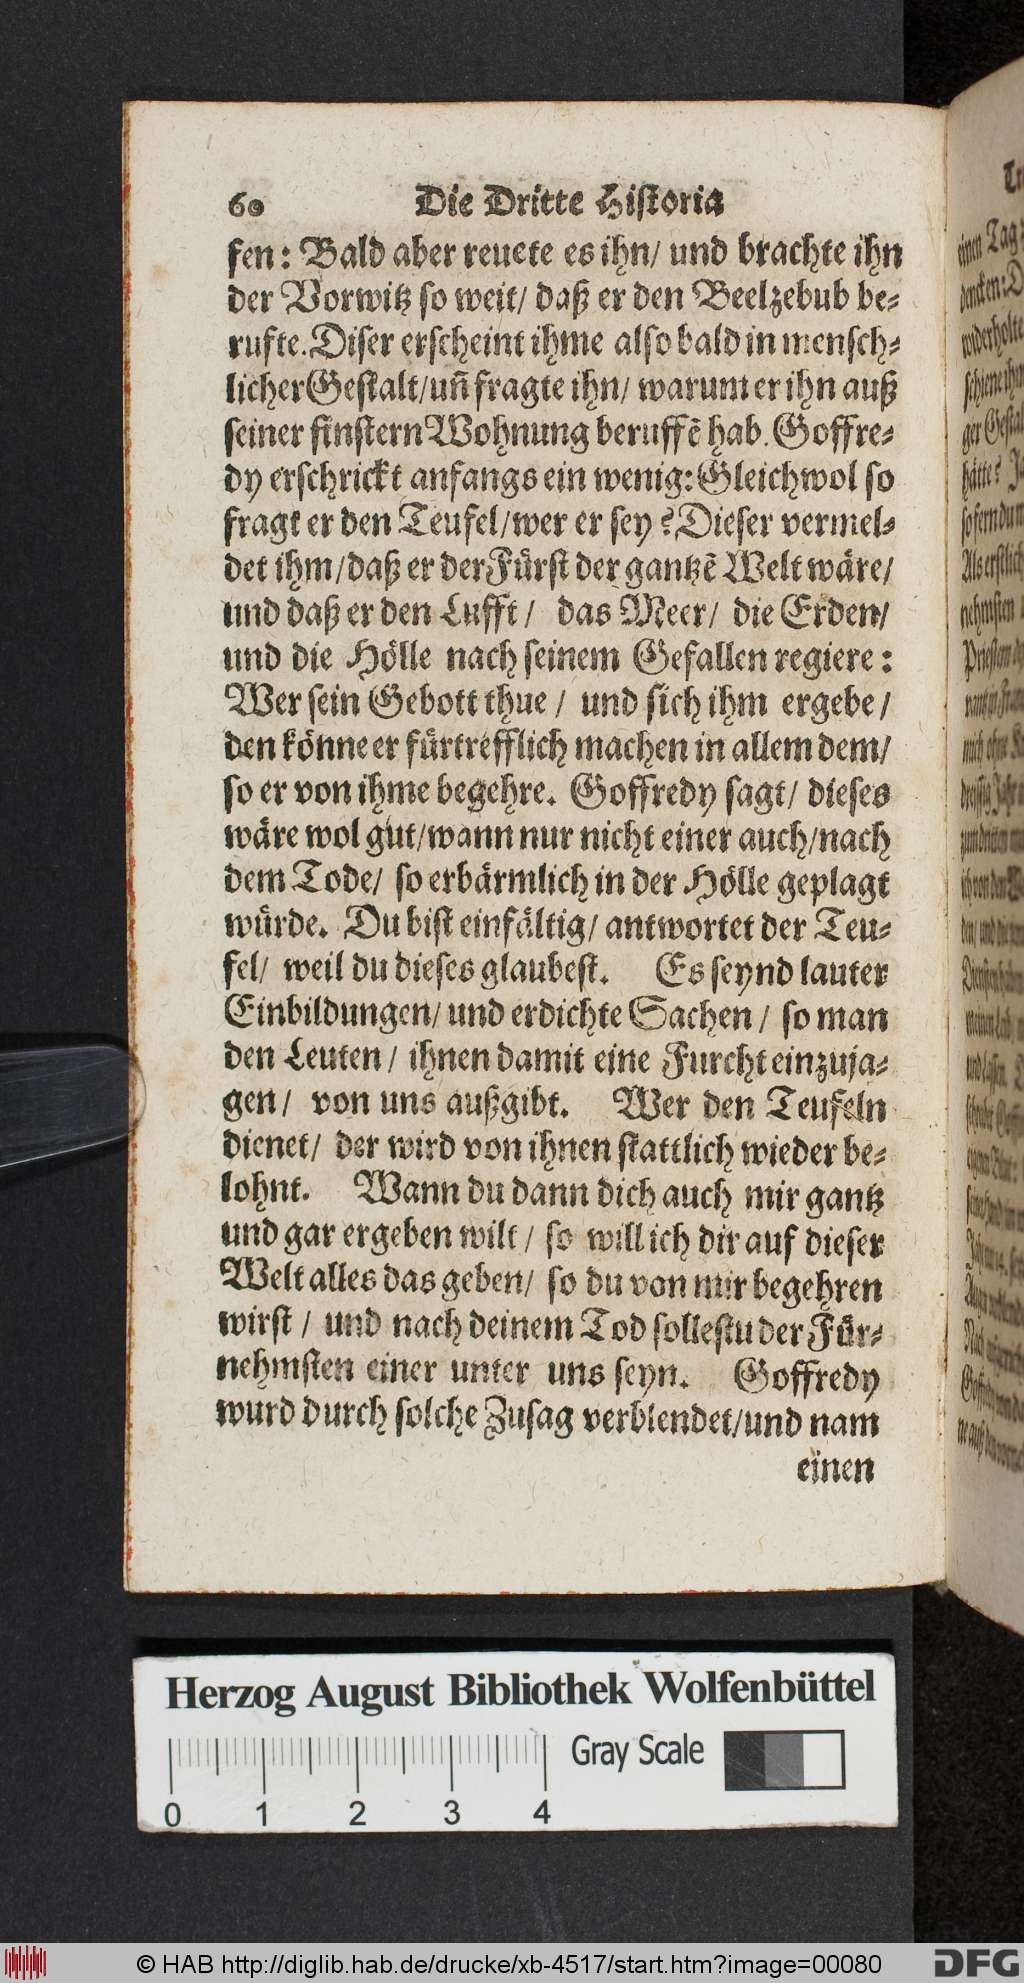 60 Die Dritte Historia
fen: Bald aber reuete es ihn/ und brachte ihn
der Vorwitz so weit/ daß er den Beelzebub be-
rufte. Diser erscheint ihme also bald in mensch-
licher Gestalt/ uñ fragte ihn/ warum er ihn auß
seiner finstern Wohnung beruffẽ hab. Goffre-
dy erschrickt anfangs ein wenig: Gleichwol so
fragt er den Teufel/ wer er sey? Dieser vermel-
det ihm/ daß er der Fürst der gantzẽ Welt wäre/
und daß er den Lufft/ das Meer/ die Erden/
und die Hölle nach seinem Gefallen regiere:
Wer sein Gebott thue/ und sich ihm ergebe/
den könne er fürtrefflich machen in allem dem/
so er von ihme begehre. Goffredy sagt/ dieses
wäre wol gut/ wann nur nicht einer auch/ nach
dem Tode/ so erbärmlich in der Hölle geplagt
würde. Du bist einfältig/ antwortet der Teu-
fel/ weil du dieses glaubest. Es seynd lauter
Einbildungen/ und erdichte Sachen/ so man
den Leuten/ ihnen damit eine Furcht einzuja-
gen/ von uns außgibt. Wer den Teufeln
dienet/ der wird von ihnen stattlich wieder be-
lohnt. Wann du dann dich auch mir gantz
und gar ergeben wilt/ so will ich dir auf dieser
Welt alles das geben/ so du von mir begehren
wirst/ und nach deinem Tod sollestu der Für-
nehmsten einer unter uns seyn. Goffredy
wurd durch solche Zusag verblendet/ und nam
einen
einen Tag
dencken: D
widerholte
schiene ihm
ger Gestal
hätte? J
so fern du m
Als erstlich
nehmsten
Herzog August Bibliothek Wolfenbüttel
Gray Scale
0 1 2 3 4
© HAB http://diglib.hab.de/drucke/xb-4517/start.htm?image=00080
DFG